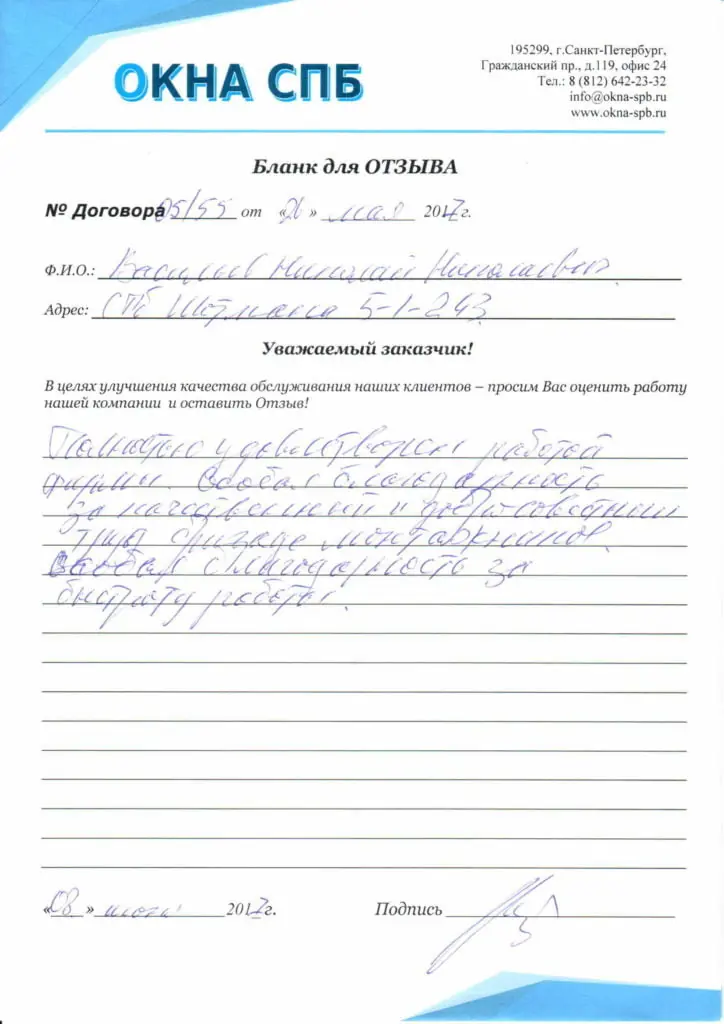 ОКНА СПБ
195299, г.Санкт-Петербург,
Гражданский пр., д.119, офис 24
Тел.: 8 (812) 642-23-32
info@okna-spb.ru
www.okna-spb.ru
Бланк для ОТЗЫВА
№ Договора 05/55 от «26» мая 2017г.
Ф.И.О.: Васильев Николай Николаевич
Адрес: СПб Шотмана 5-1-243
Уважаемый заказчик!
В целях улучшения качества обслуживания наших клиентов – просим Вас оценить работу
нашей компании и оставить Отзыв!
Полностью удовлетворен работой
фирмы. Особая благодарность
за качественный и добросовестный
труд бригаде монтажников.
Особая благодарность за
быстроту работы.
«08» июня 2017г. Подпись